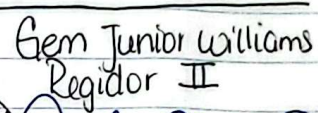 Gem Junior Williams
Regidor II